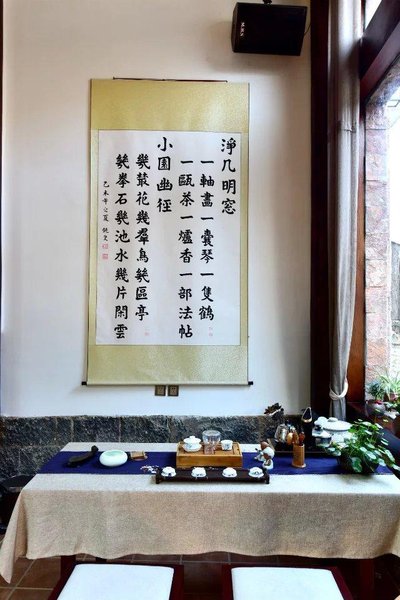 淨几明窓
一軸畫一囊琴一隻鶴
一甌茶一爐香一部法帖
小園幽徑
幾叢花幾羣鳥幾區亭
幾拳石幾池水幾片閑雲